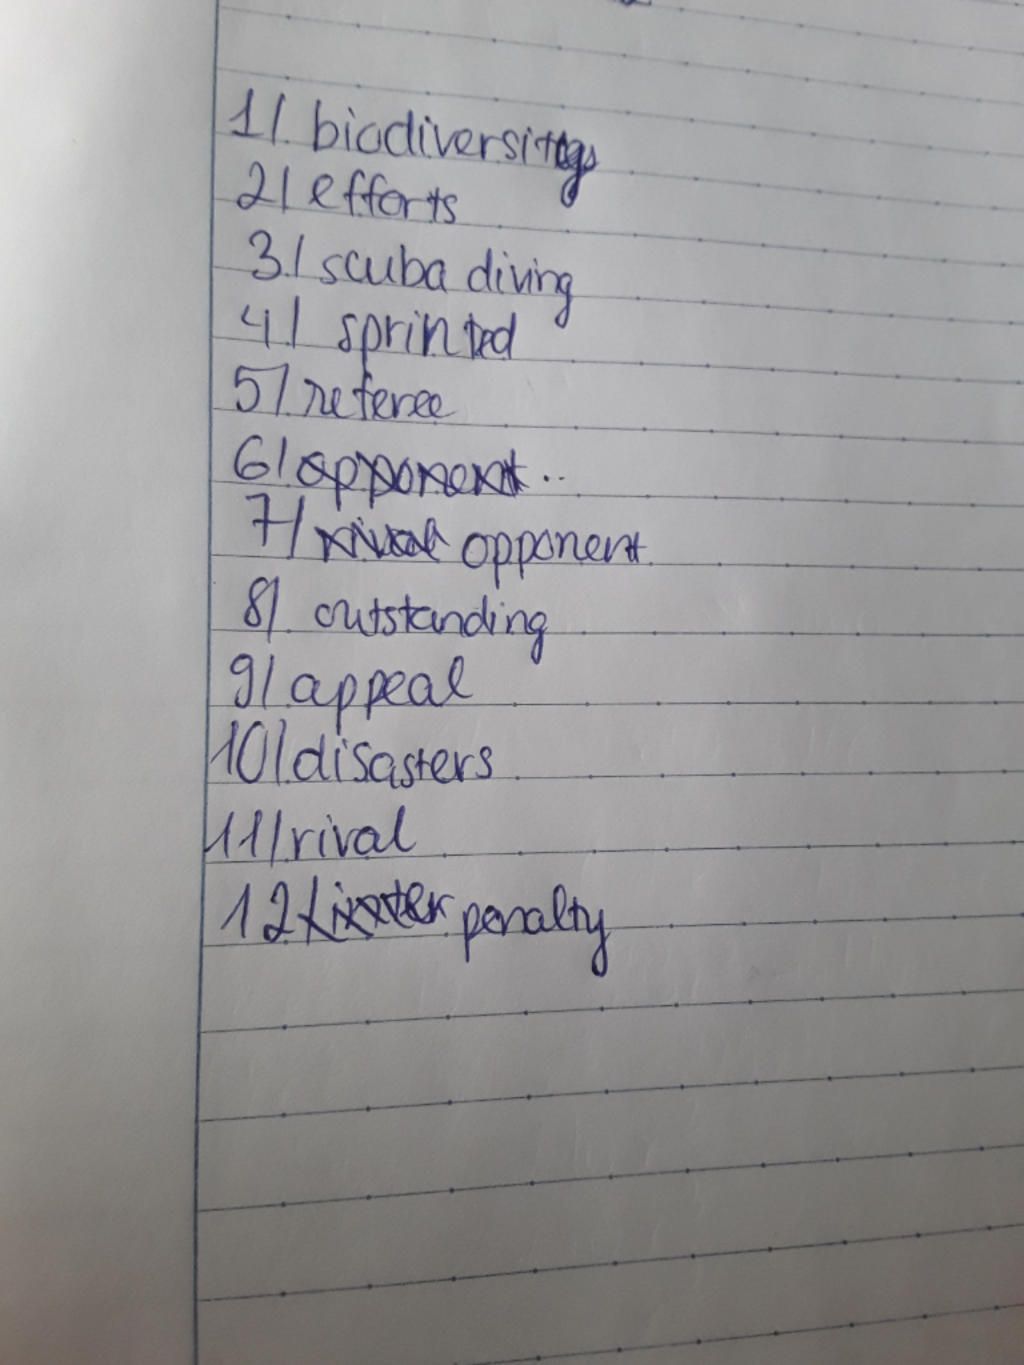 1/ biodiversity
2/ efforts
3/ scuba diving
4/ sprinted
5/ referee
6/ opponent ..
7/ rival opponent
8/ outstanding
9/ appeal
10/ disasters
11/ rival
12/ penalty